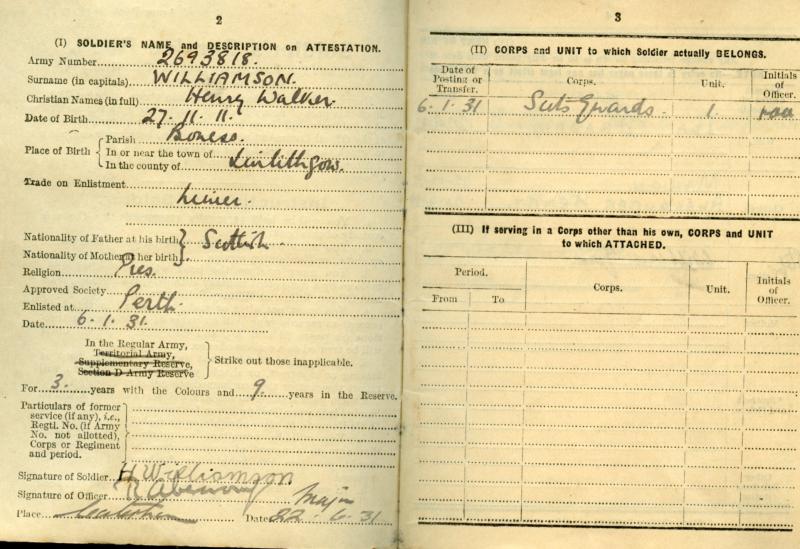 2
(I) SOLDIER'S NAME and DESCRIPTION on ATTESTATION.
Army Number 2693818.
Surname (in capitals) WILLIAMSON.
Christian Names (in full) Henry Walker.
Date of Birth 27. 11. 11.
Place of Birth { Parish Boness.
In or near the town of
In the county of Linlithgow.
Trade on Enlistment
Miner.
Nationality of Father at his birth } Scottish.
Nationality of Mother at her birth
Religion Pres.
Approved Society
Enlisted at Perth.
Date 6. 1. 31.
In the Regular Army,
Territorial Army,
Supplementary Reserve,
Section D Army Reserve
} Strike out those inapplicable.
For 3 years with the Colours and 9 years in the Reserve.
Particulars of former
service (if any), i.e.,
Regtl. No. (if Army
No. not allotted),
Corps or Regiment
and period.
Signature of Soldier H Williamson
Signature of Officer Major
Place Date 22. 6. 31
3
(II) CORPS and UNIT to which Soldier actually BELONGS.
Date of Posting or Transfer. Corps. Unit. Initials of Officer.
6. 1. 31 Scots Guards. 1.
(III) If serving in a Corps other than his own, CORPS and UNIT
to which ATTACHED.
Period. Corps. Unit. Initials of Officer.
From To